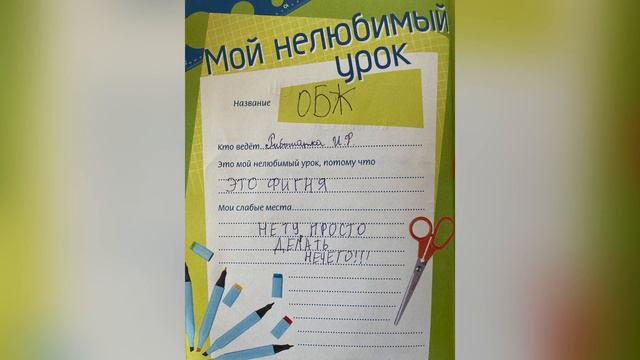 Мой нелюбимый
урок
Название ОБЖ
Кто ведёт И.Р.
Это мой нелюбимый урок, потому что
ЭТО ФИГНЯ
Мои слабые места
НЕТУ, ПРОСТО
ДЕЛАТЬ
НЕЧЕГО!!!